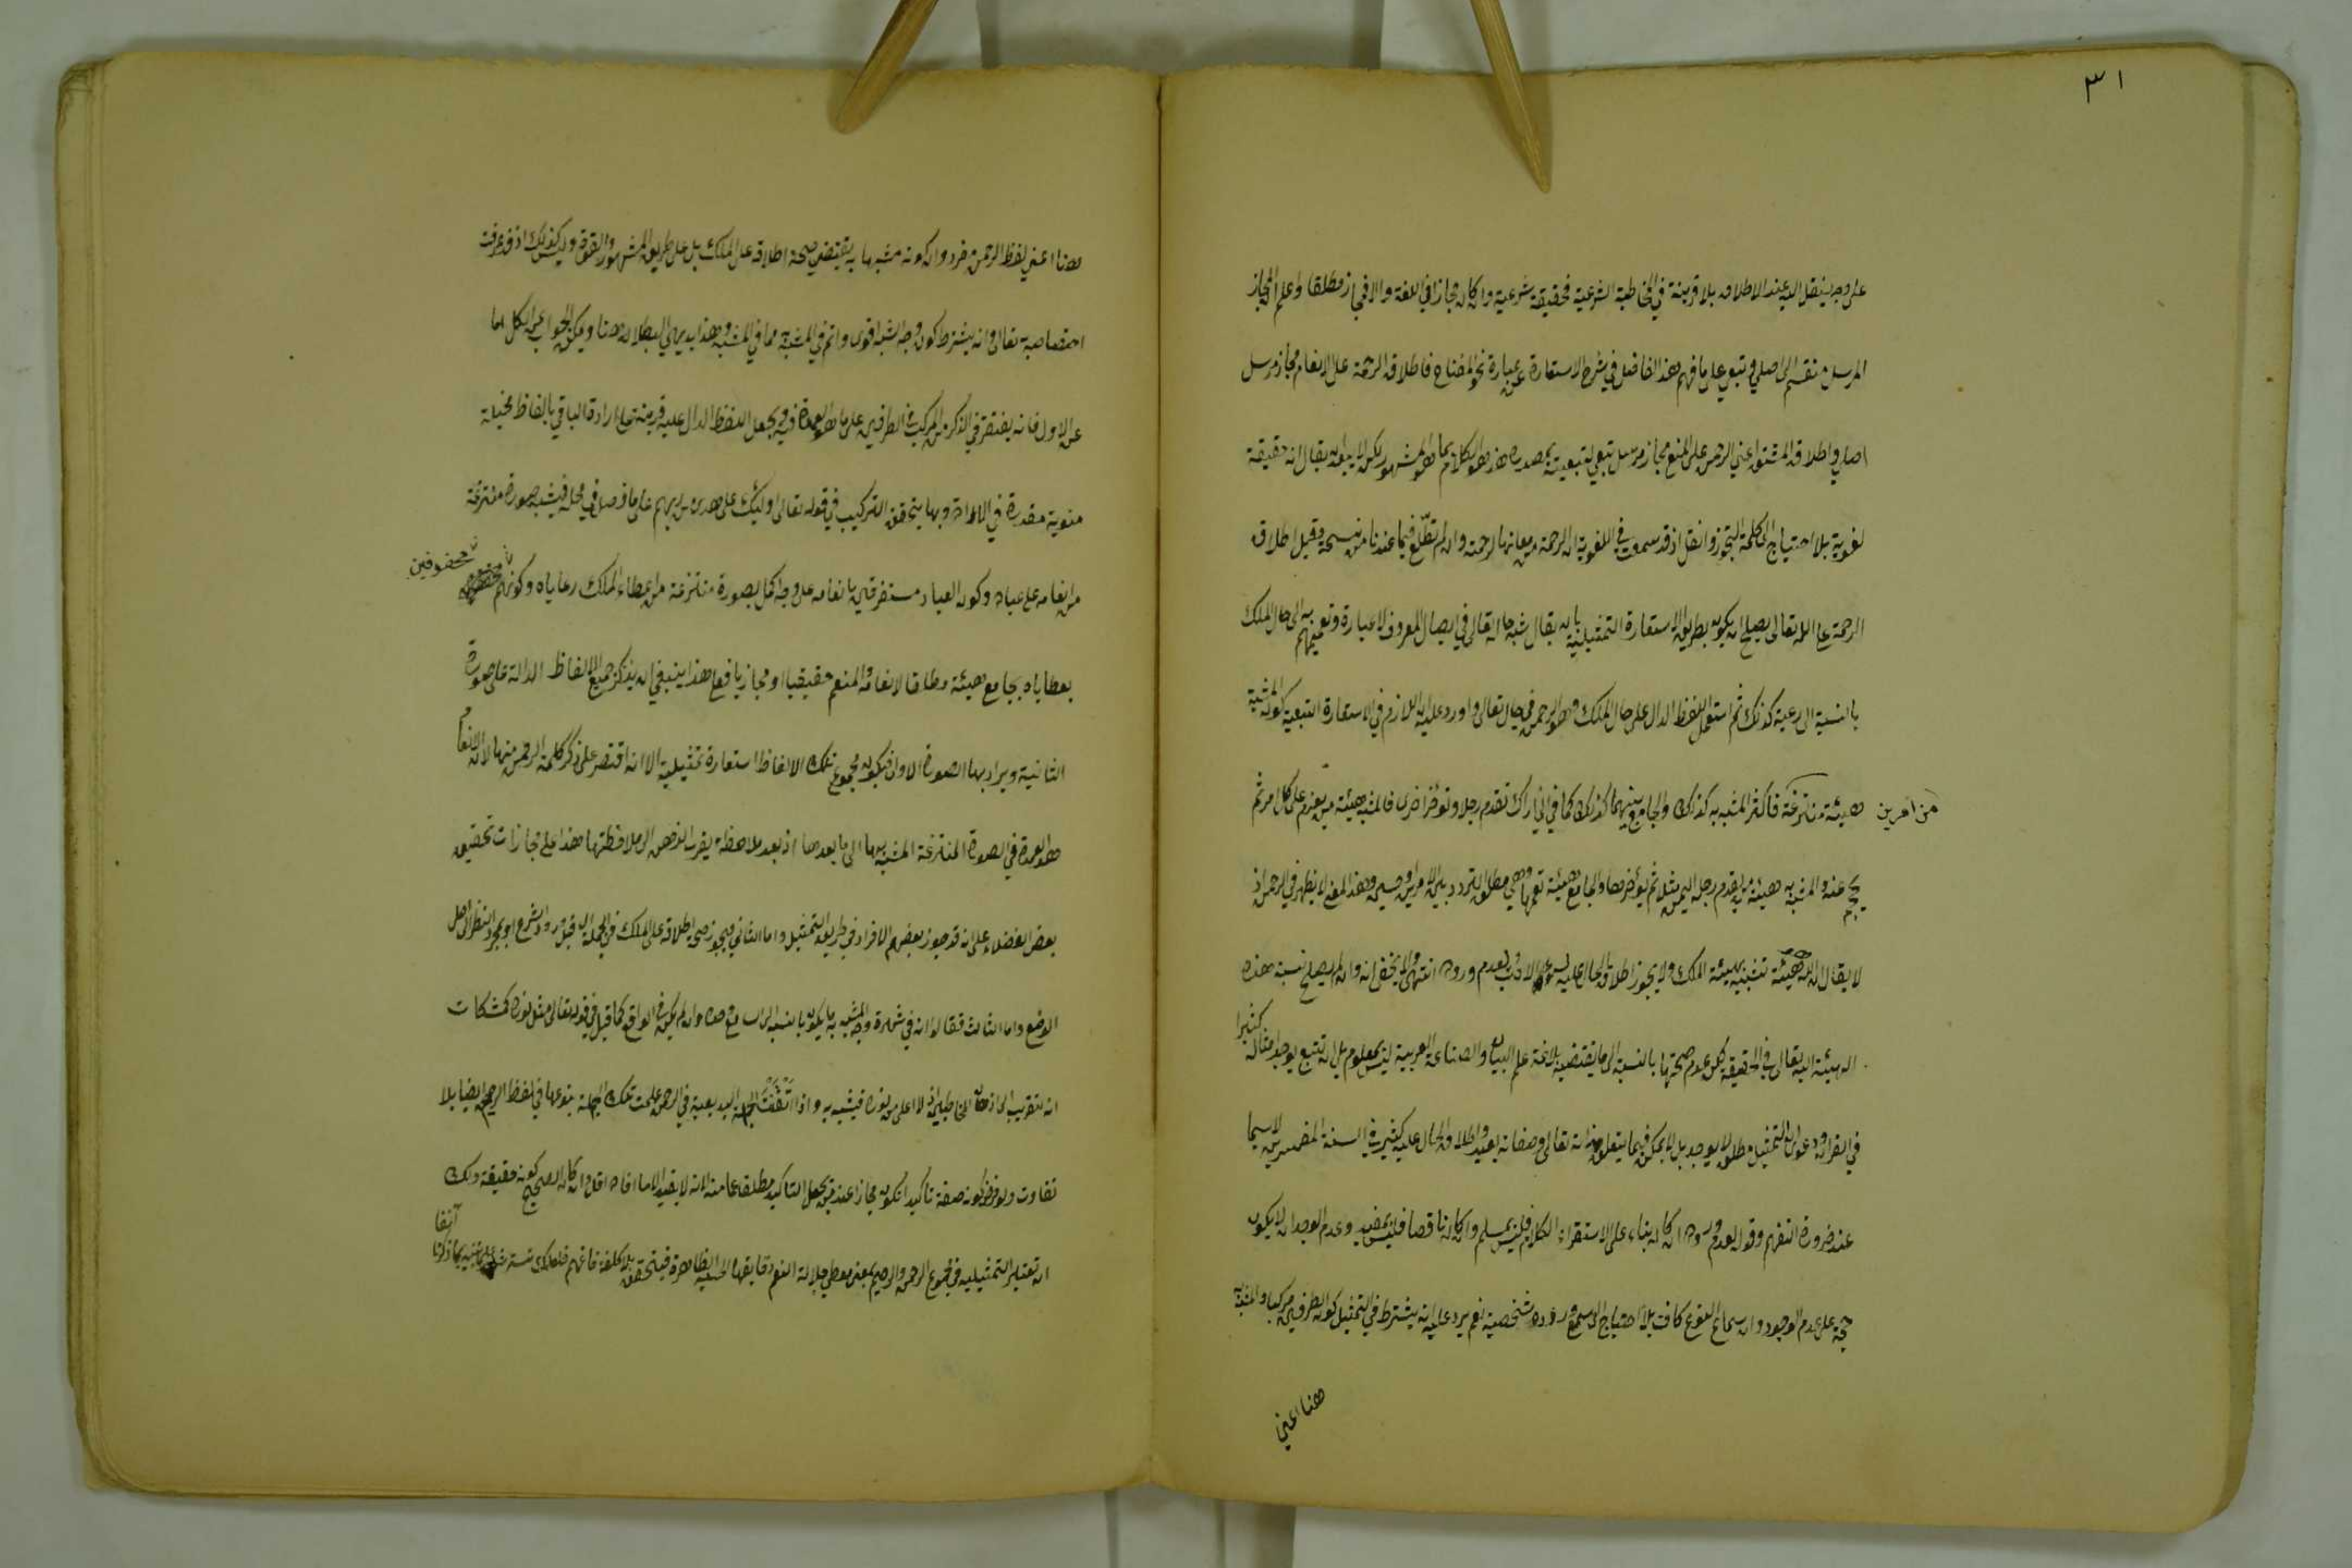 ٣١
على وجه ينقل اليه عند الاطلاق بلا قرينة في المخاطبة الشرعية فحقيقة شرعية وان كان مجازا في اللغة والا فمجاز مطلقا واعلم ان المجاز
المرسل منقسم الى اصلي وتبعي على ما فهم هذا الفاضل في شرح الاستعارة عن عبارة نحو المفتاح فاطلاق الرحمة على الانعام مجاز مرسل
اصلي واطلاق المشتق اعني الرحمن على المنعم مجاز مرسل تبعي لتبعيته بمصدره هذا هو الكلام بما هو المشهور لكن لا يبعد ان يقال انه حقيقة
لغوية بلا احتياج الى كلمة التجوز والنقل اذ قد سمعت في اللغوية ان الرحمة من معانيها الرحمة وان لم تطلع فيما عندنا من نسخه وقيل اطلاق
الرحمة على الله تعالى يصلح ان يكون بطريق الاستعارة التمثيلية بان يقال شبه حاله تعالى في ايصال المعروف لا عباده وتعميمهم به الى حال الملك
بالنسبة الى رعيته كذلك ثم استعمل اللفظ الدال على حال الملك وهو الرحمن في حاله تعالى واورد عليه ان اللازم في الاستعارة التبعية كون المشبه
هيئة منتزعة من امرين فاكثر المشبه به كذلك والجامع بينهما كذلك كما في اني اراك تقدم رجلا وتؤخر اخرى فالمشبه هيئة من يعزم على كل امر ثم
يحجم عنه والمشبه به هيئة من يقدم رجله اليمين مثلا ثم يؤخرها والجامع هيئة تعمهما وهي مطلق التردد بين الامرين وحسي وهذا المعنى لا يظهر في الرحمن اذ
لا يقال ان لله هيئة تشبه بهيئة الملك ولا يجوز اطلاق الحال عليه لسوء الادب لعدم وروده انتهى ولا يخفى انه وان لم يصلح نسبة هذه
الهيئة اليه تعالى في الحقيقة لكن عدم صحتها بالنسبة الى ما يقتضيه بلاغة علم البيان والصناعة العربية ليس بمعلوم بل ان تتبع يوجد امثاله كثيرا
في القران ودعوى ان التمثيل مطلقا لا يوجد بل لا يمكن فيما يتعلق بذاته تعالى وصفاته بعيد واطلاق الحال عليه كثير في السنة المفسرين لا سيما
عند ضرورة التفهيم وقوله لعدم وروده ان كان بناء على الاستقراء الكلام فليس بمسلم وان كان ناقصا فليس بمفيد وعدم الوجدان لا يكون
حجة على عدم الوجود وان سماع النوع كاف بلا احتياج الى سمع ورود شخصية نعم يرد عليه انه يشترط في التمثيل كون الطرفين مركبا والمشبه به
هنا اعني
هنا اعني لفظ الرحمن مفرد وان كونه مشبها به يقتضي صحة اطلاقه على الملك بل على طريق المشهور والقوة وليس كذلك اذ قد عرفت
اختصاصه به تعالى وانه يشترط كون وجه الشبه اقوى واتم في المشبه به مما في المشبه وهذا بديهي البطلان هنا ويمكن الجواب عن الكل اما
عن الاول فانه يقتصر في الذكر من المركب في الطرفين على ما هو العمدة فيه ويجعل اللفظ الدال عليه قرينة على ارادة الباقي بالفاظ مخيلة
منوية مقدرة في الارادة وبها يتحقق التركيب في قوله تعالى اولئك على هدى من ربهم على ما فصل في محله فيشبه صورة منتزعة
من انعامه على عباده وكون العباد مستغرقين بانعامه على وجه اكمل بصورة منتزعة من اعطاء الملك رعاياه وكونهم محفوفين
بعطاياه بجامع هيئة مطلق الانعام والمنعم حقيقيا او مجازيا فعلى هذا ينبغي ان يذكر جميع الالفاظ الدالة على صورة
الثانية ويراد بها الصورة الاولى فيكون مجموع تلك الالفاظ استعارة تمثيلية الا انه اقتصر على ذكر كلمة الرحمن منها لان الانعام
هو العمدة في الصورة المنتزعة المشبه بها الى ما بعدها اذ بعد ملاحظته يقرب الذهن الى ملاحظتها هذا على مجازات تحقيق
بعض الفضلاء على انه قد جوز بعضهم الافراد في طريق التمثيل واما الثاني فيجوز صحة اطلاقه على الملك في الجملة اي قبل ورود الشرع او بمجرد النظر الى اصل
الوضع واما الثالث فقالوا انه في شهرة وجه المشبه به ما يكون بالنسبة الى السامع وحده وان لم يكن في الواقع كما قيل في قوله تعالى مثل نوره كمشكات
انه تقريب الى اذهان المخاطبين اذ لا اعلى من نوره فيشبه به واذا اتقنت الجملة البديعية في الرحمن علمت تلك الجملة بنوعها في لفظ الرحيم ايضا بلا
تفاوت ولو فرض كونه صفة تاكيد انكون مجازا عند من يجعل التاكيد مطلقا عامته لانه لا يفيد الا ما افاده اقله وان كان الصحيح كونه حقيقة ولك
ان تعتبر التمثيلية في مجموع الرحمن والرحيم بمعنى معطي جلالة النعم ودقايقها الحسية الظاهرة فيتحقق بلا كلفة فافهم فلعلك تنبيه بما ذكرنا آنفا